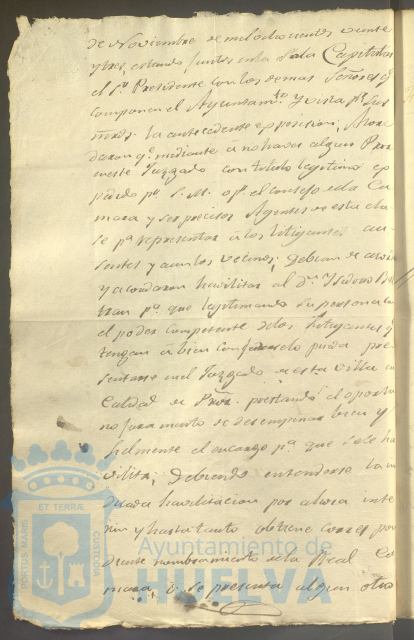 de Noviembre de mil ochocientos veinte
y tres, estando juntos en la Sala Capitular
el Sr. Presidente con los demas Señores qe.
componen el Ayuntamto. y vista pr. sus
mrds. la antecedente exposicion, Acor
daron qe. mediante a no haver algun Pror.
en este Juzgado con titulo legitimo ex
pedido pr. S. M. o pr. el consejo de la Ca
mara y ser precisos Agentes de esta cla
se pa. representar a los litigantes au
sentes y aun los vecinos; debian de
y acordaron havilitar al dn. Isidoro
tran pa. que legitimando su persona con
el poder competente de los litigantes q
tengan a bien conferirselo pueda pre
sentarse en el Juzgado de esta villa en
Calidad de Pror. prestando el oportu
no juramento de desempeñar bien y
fielmente el encargo pa. que se le ha
vilita; debiendo entenderse la in
dicada havilitacion por ahora inte
rin y hasta tanto obtiene corres pon
diente nombramiento de la Real Ca
mara, o se presenta algun otro
Ayuntamiento de
HUELVA
PORTUS MARIS
ET TERRÆ
CUSTODIA